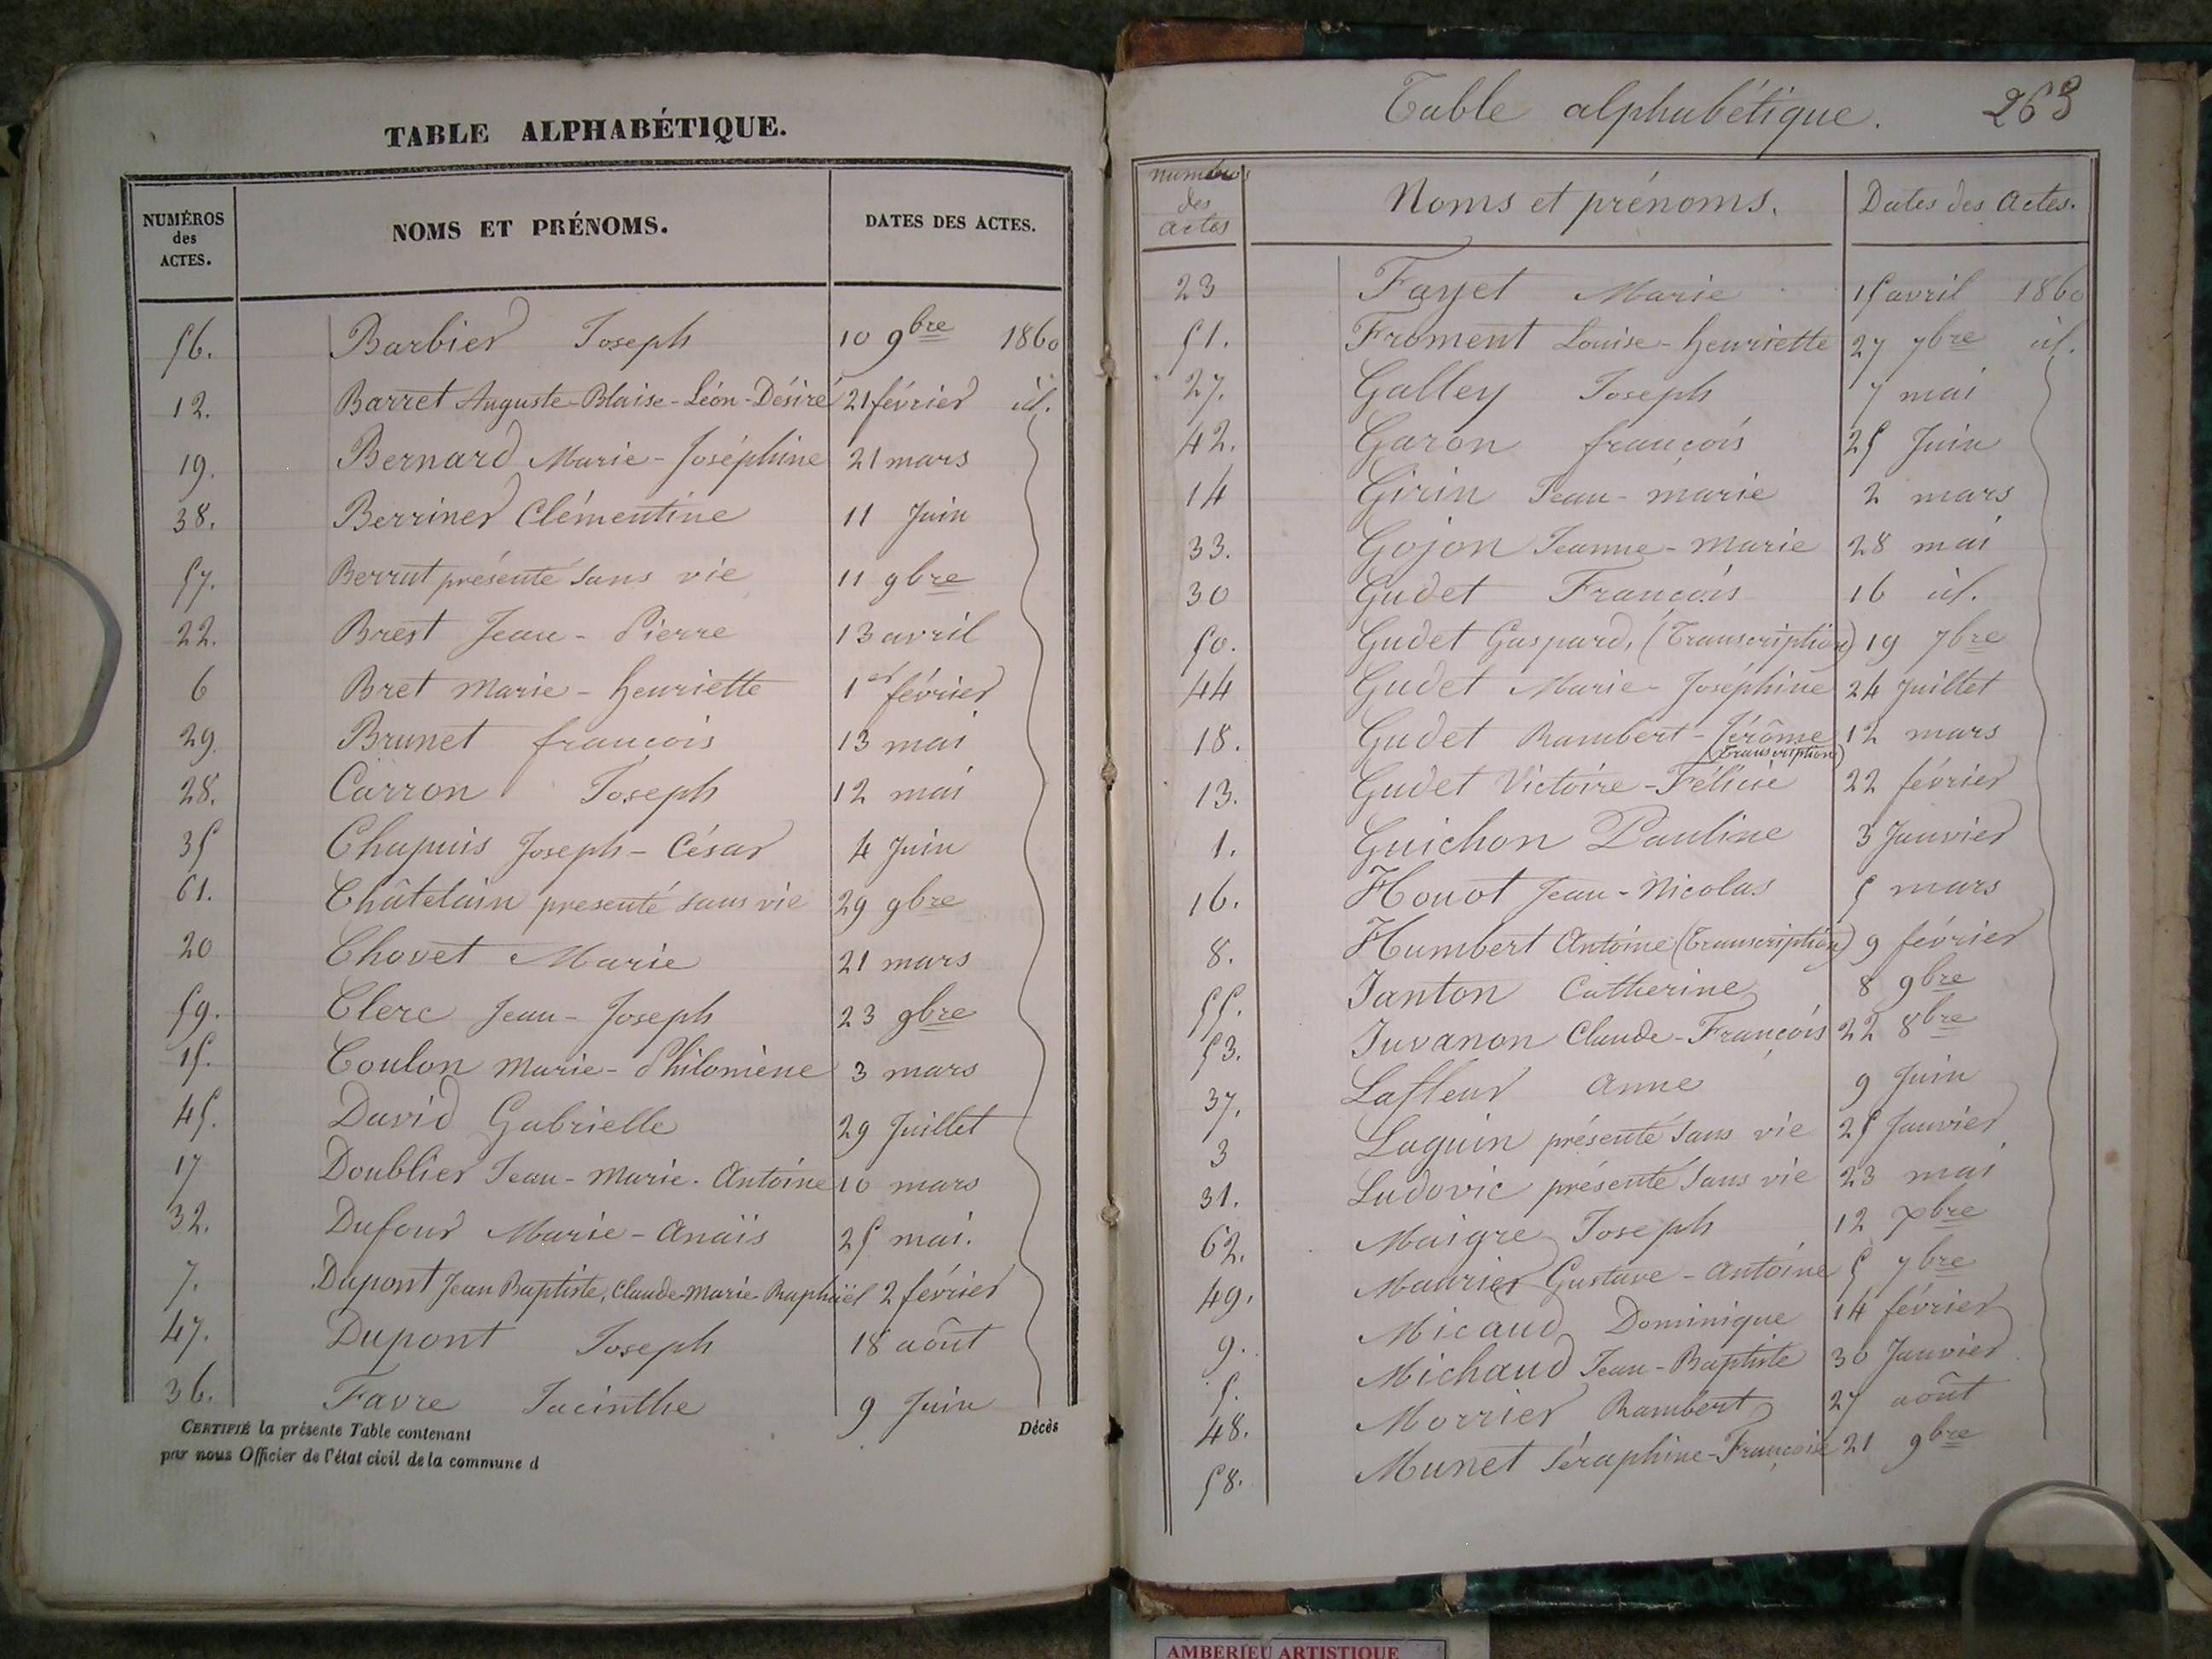 TABLE ALPHABÉTIQUE.
NUMÉROS des ACTES. NOMS ET PRÉNOMS. DATES DES ACTES.
56. Barbier Joseph 10 9bre 1860
12. Barret Auguste-Blaise-Léon-Désiré 21 février id.
19. Bernard Marie-Joséphine 21 mars
38. Berriner Clémentine 11 Juin
57. Berrut présenté sans vie 11 9bre
22. Brest Jean-Pierre 13 avril
6 Bret Marie-henriette 1er février
29. Brunet françois 13 mai
28. Carron Joseph 12 mai
35 Chapuis Joseph-César 4 Juin
61. Châtelain presenté sans vie 29 9bre
20 Chovet Marie 21 mars
59. Clerc Jean-Joseph 23 9bre
15. Coulon Marie-Philomène 3 mars
45. David Gabrielle 29 Juillet
17 Doublier Jean-Marie-Antoine 10 mars
32. Dufour Marie-Anaïs 25 mai.
7. Dupont Jean Baptiste, Claude-Marie-Raphaël 2 février
47. Dupont Joseph 18 août
36. Favre Jacinthe 9 Juin
CERTIFIÉ la présente Table contenant Décès
par nous Officier de l'état civil de la commune d
Table alphabétique. 263
numéros des actes Noms et prénoms. Dates des Actes.
23 Fayet Marie 15 avril 1860
51. Froment Louise-henriette 27 7bre id.
27. Galley Joseph 7 mai
42. Garon françois 25 Juin
14 Girin Jean-marie 2 mars
33. Gojon Jeanne-marie 28 mai
30 Gudet François 16 id.
50. Gudet Gaspard, (Transcription) 19 7bre
44 Gudet Marie-Joséphine 24 Juillet
18. Gudet Rambert-Jérôme 12 mars
(Transcription)
13. Gudet Victoire-Félicie 22 février
1. Guichon Pauline 3 Janvier
16. Houot Jean-Nicolas 5 mars
8. Humbert Antoine (Transcription) 9 février
55. Janton Catherine 8 9bre
53. Juvanon Claude-François 22 8bre
37. Lafleur Anne 9 Juin
3 Laguin présenté sans vie 25 Janvier
31. Ludovic présenté sans vie 23 mai
62. Maigre Joseph 12 Xbre
49. Maurier Gustave-Antoine 5 7bre
9. Micaud Dominique 14 février
5. Michaud Jean-Baptiste 30 Janvier
48. Morrier Rambert 27 août
58. Munet Séraphine-Françoise 21 9bre
AMBERIEU ARTISTIQUE